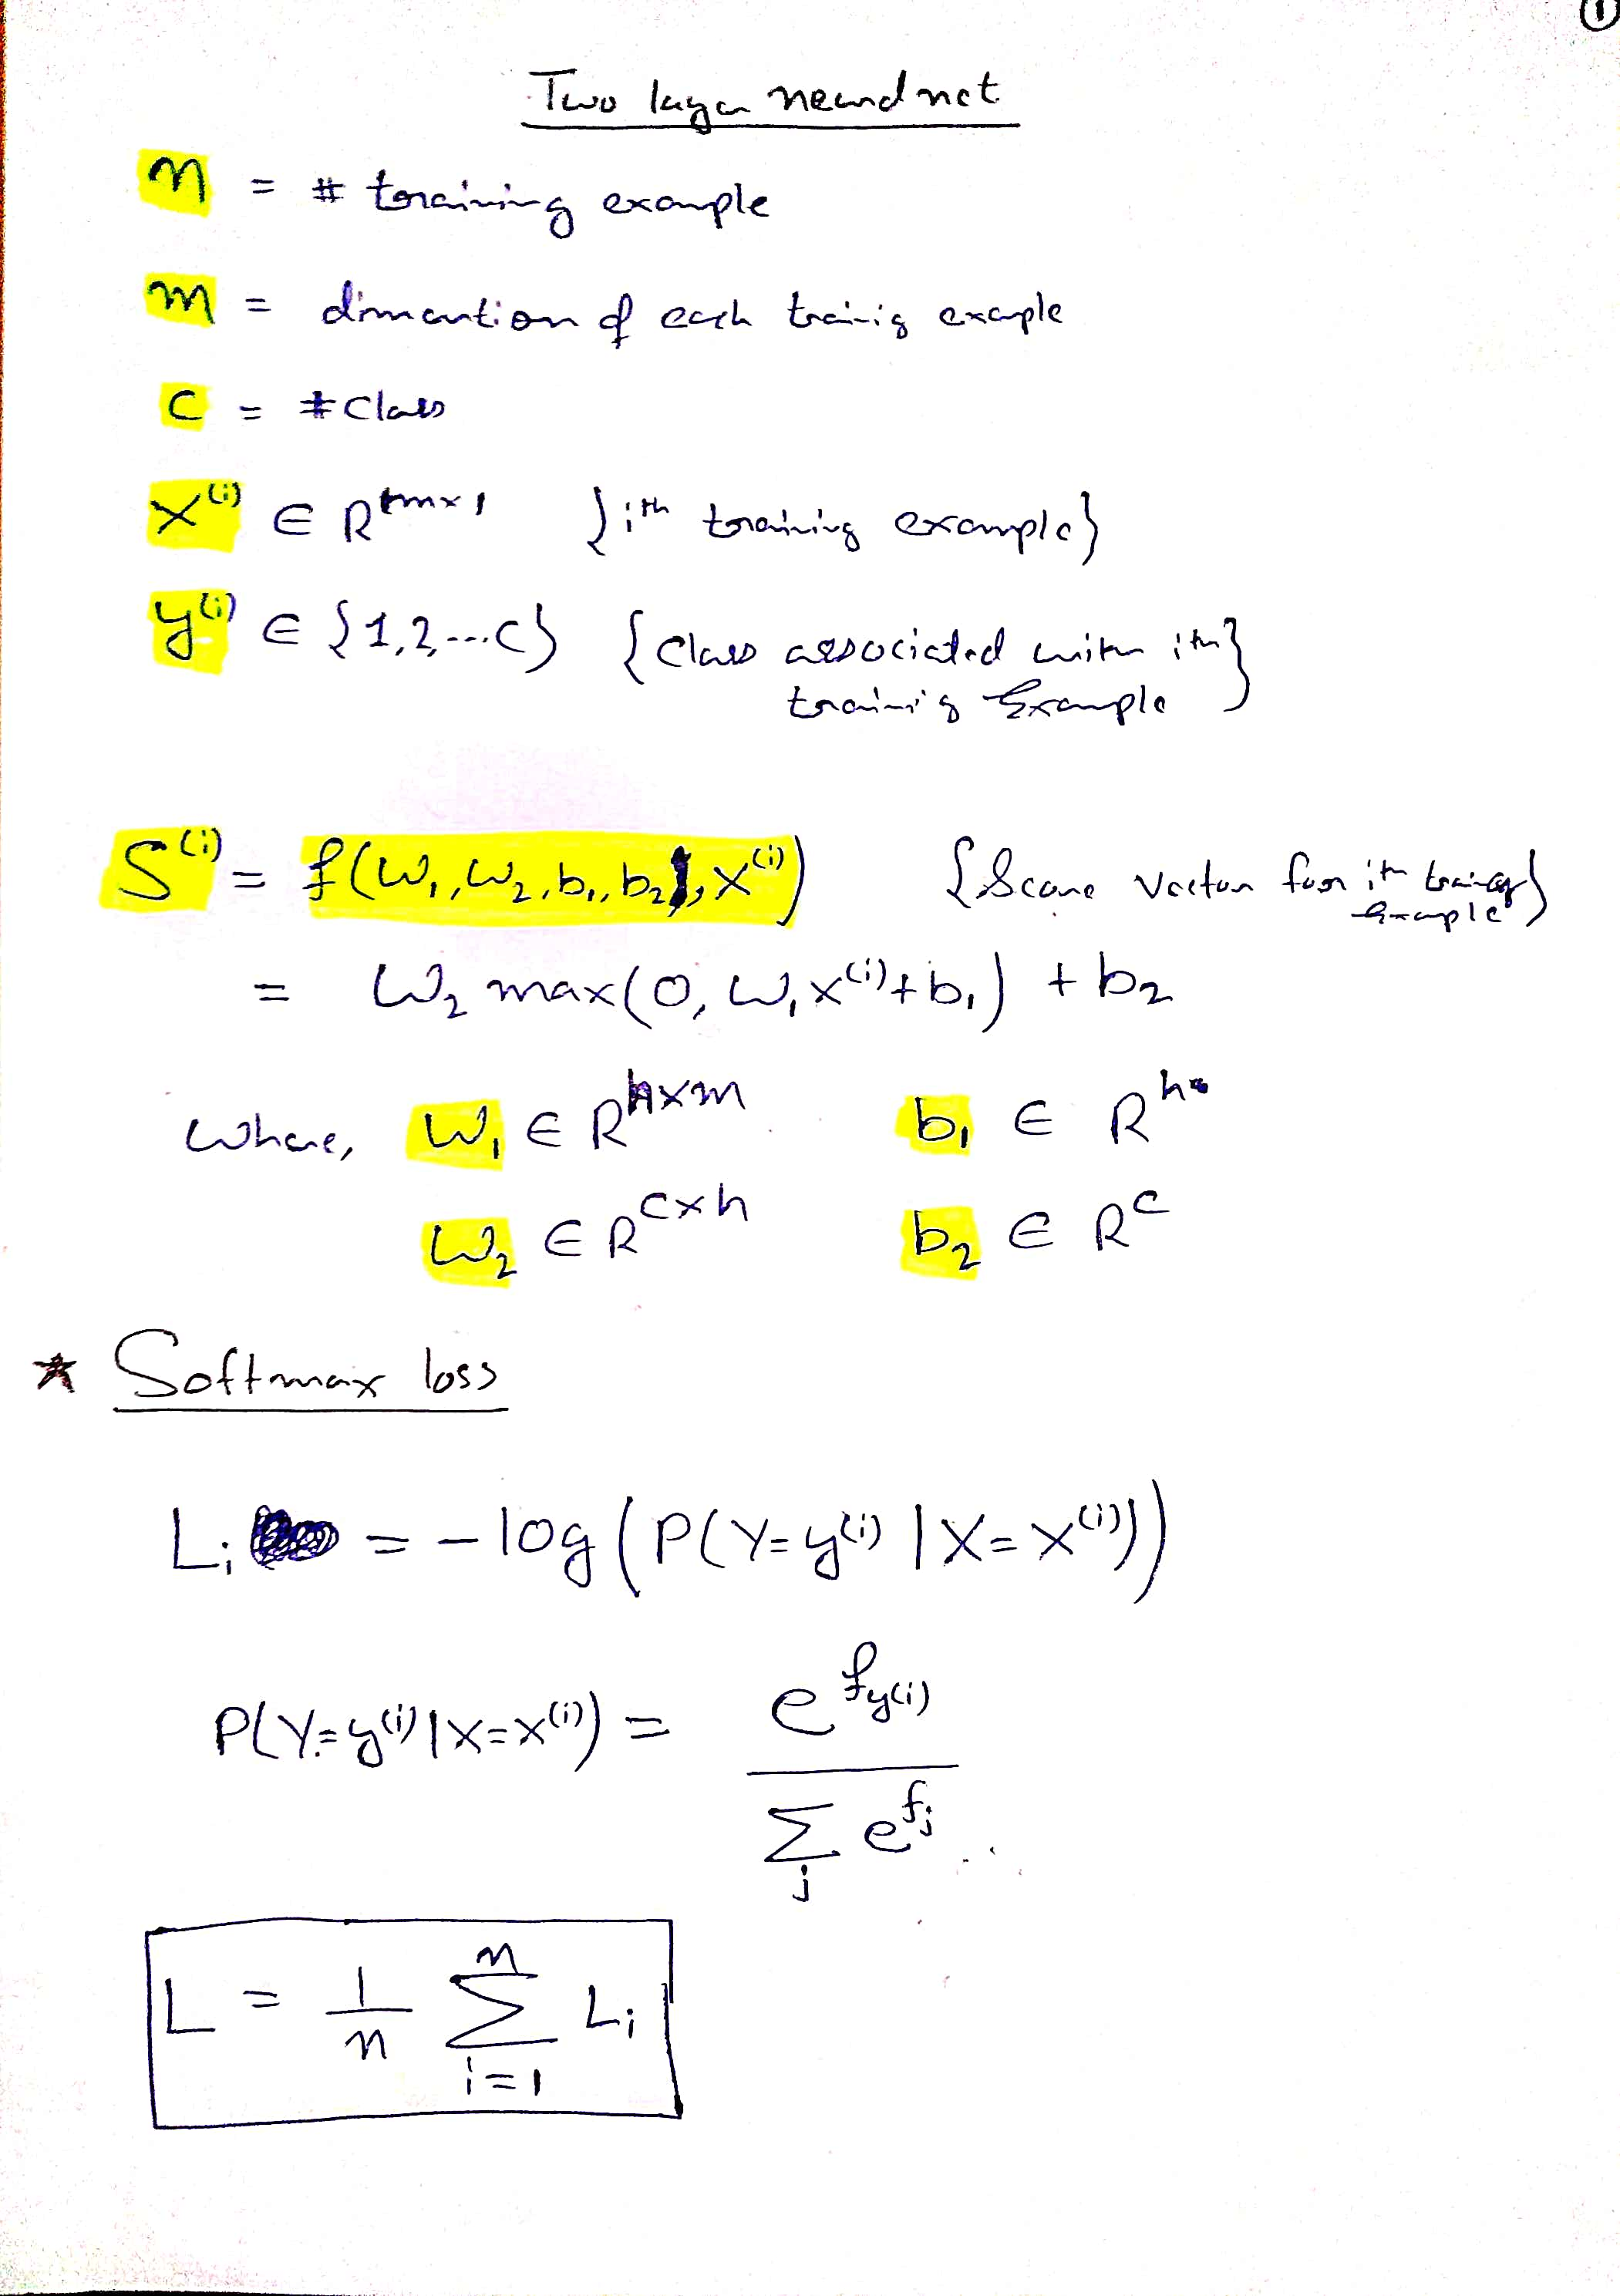 1
Two layer neural net
n = # training example
m = dimantion of each trainig example
C = #Class
x⁽ⁱ⁾ ∈ R^{m×1} {ith training example}
y⁽ⁱ⁾ ∈ {1,2,...C} {Class associated with ith
trainig Example}
S⁽ⁱ⁾ = f(W₁, W₂, b₁, b₂, x⁽ⁱ⁾) {Score vector for ith training
Example}
= W₂ max(0, W₁x⁽ⁱ⁾+b₁) + b₂
Where, W₁ ∈ R^{h×m} b₁ ∈ R^h
W₂ ∈ R^{C×h} b₂ ∈ R^C
* Softmax loss
L_i = -log(P(Y=y⁽ⁱ⁾ | X=x⁽ⁱ⁾))
P(Y=y⁽ⁱ⁾ | X=x⁽ⁱ⁾) = e^{f_{y(i)}} / Σ_j e^{f_j}
L = 1/n Σ_{i=1}^{n} L_i